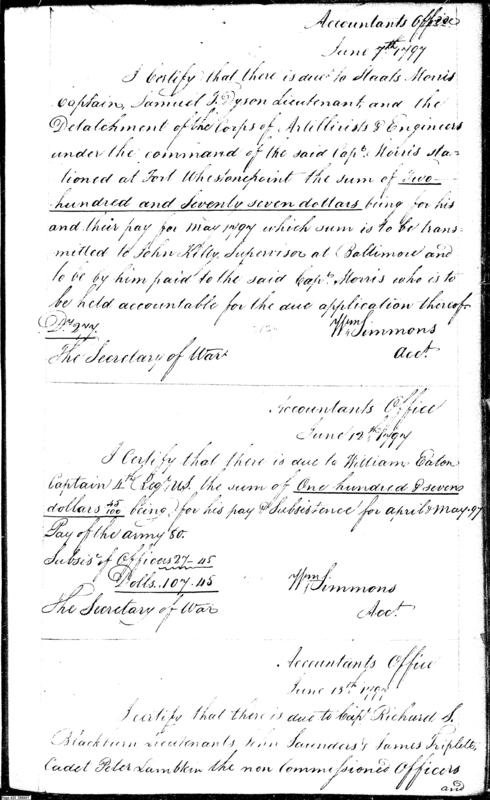 Accountants Office
June 7th 1797
I Certify that there is due to Staats Morris
Captain, Samuel T. Dyson Lieutenant and the
Detatchment of the Corps of Artillirists & Engineers
under the command of the said Capt. Morris sta-
tioned at Fort Whestonepoint the sum of Two
hundred and Seventy seven dollars being for his
and their pay for May 1797 which sum is to be trans-
mitted to John Kilty, Supervisor at Baltimore and
to be by him paid to the said Capt. Morris who is to
be held accountable for the due application thereof
Drs 277.
Wm Simmons
The Secretary of War
Acct.
Accountants Office
June 12th 1797
I Certify that there is due to William Eaton
Captain 4th Regt. US. the sum of One hundred & seven
dollars 45/100 being for his pay & Subsistence for april & May 97
Pay of the army 80.
Subsis. of Officers 27-45
Dolls. 107.45
Wm Simmons
The Secretary of War
Acct.
Accountants Office
June 13th 1797
I certify that there is due to Capt. Richard S.
Blackburn Lieutenants, John Saunders & James Triplett,
Cadet Peter Lambkin the non Commissioned Officers
and